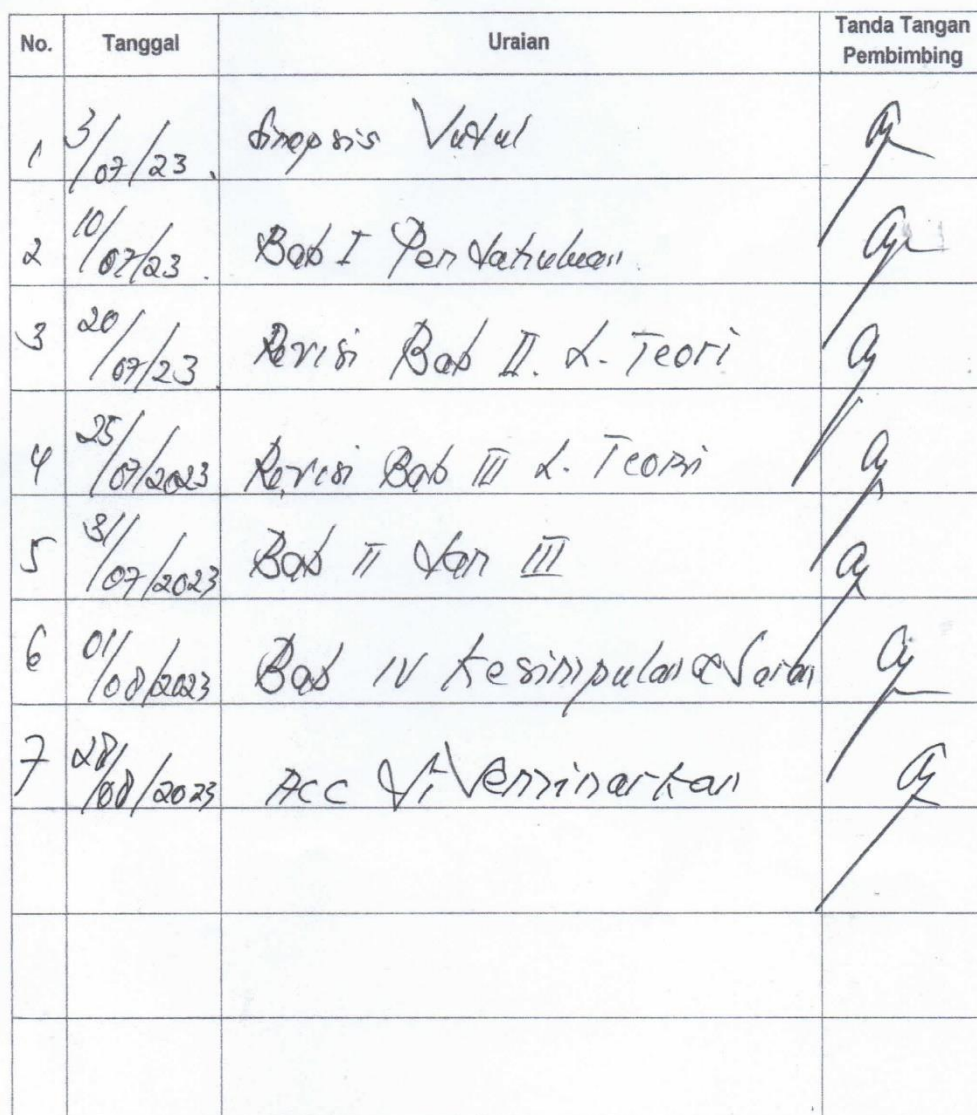 No. Tanggal Uraian Tanda Tangan Pembimbing
1 3/07/23 Sinopsis Judul
2 10/07/23 Bab I Pendahuluan
3 20/07/23 Revisi Bab II. L. Teori
4 25/07/2023 Revisi Bab III L. Teori
5 31/07/2023 Bab II dan III
6 01/08/2023 Bab IV Kesimpulan & Saran
7 28/08/2023 Acc di Seminarkan